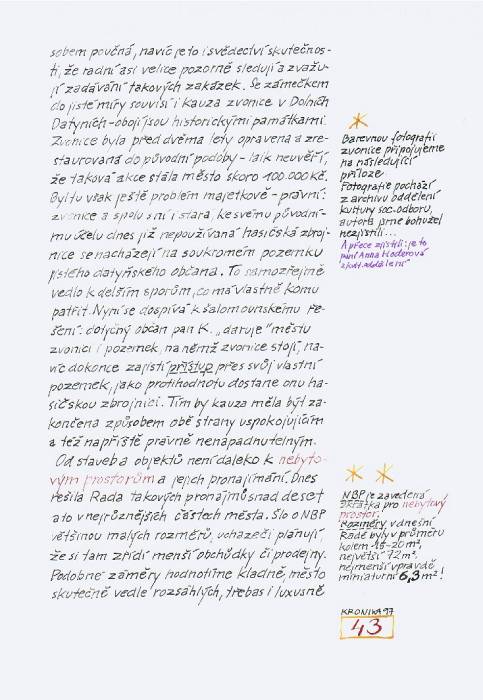 sobem poučná, navíc je to i svědectví skutečnos-
ti, že radní asi velice pozorně sledují a zvažu-
jí zadávání takových zakázek. Se zámečkem
do jisté míry souvisí i kauza zvonice v Dolních
Datyních - obojí jsou historickými památkami.
Zvonice byla před dvěma lety opravena a zre-
staurována do původní podoby - laik neuvěří,
že taková akce stála město skoro 100.000 Kč.
Byl tu však ještě problém majetkově - právní:
zvonice a spolu s ní i stará, ke svému původní-
mu účelu dnes již nepoužívaná hasičská zbroj-
nice se nacházejí na soukromém pozemku
jistého datyňského občana. To samozřejmě
vedlo k delším sporům, co má vlastně komu
patřit. Nyní se dospívá k šalomounskému ře-
šení: dotyčný občan pan K. „daruje" městu
zvonici i pozemek, na němž zvonice stojí, na-
víc dokonce zajistí přístup přes svůj vlastní
pozemek, jako protihodnotu dostane onu ha-
sičskou zbrojnici. Tím by kauza měla být za-
končena způsobem obě strany uspokojujícím
a též napříště právně nenapadnutelným.
Od staveb a objektů není daleko k nebyto-
vým prostorům a jejich pronajímání. Dnes
řešila Rada takových pronájmů snad deset
a to v nejrůznějších částech města. Šlo o NBP
většinou malých rozměrů, uchazeči plánují,
že si tam zřídí menší obchůdky či prodejny.
Podobné záměry hodnotíme kladně, město
skutečně vedle rozsáhlých, třebas i luxusně
Barevnou fotografii
zvonice připojujeme
na následující
příloze
Fotografie pochází
z archivu oddělení
kultury soc. odboru,
autora jsme bohužel
nezjistili...
A přece zjistili: je to
paní Anna Hoderová
z kult. oddělení
NBP je zavedená
zkratka pro nebytový
prostor.
Rozměry v dnešní
Radě byly v průměru
kolem 15-20 m²,
největší 72 m²,
nejmenší vpravdě
miniaturní 6,3 m²!
KRONIKA 97
43